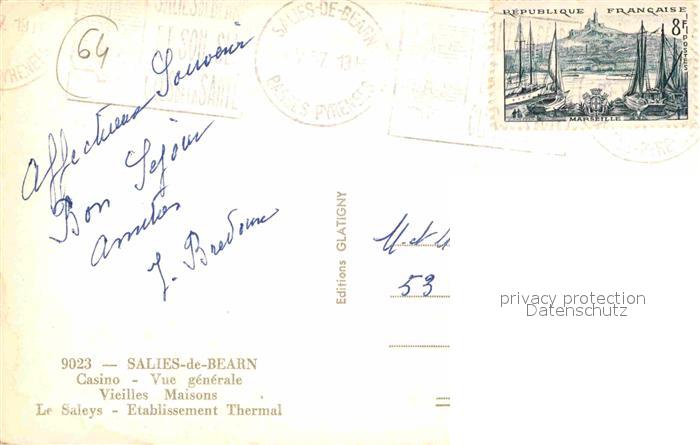 64
SALIES-DE-BEARN
RÉPUBLIQUE FRANÇAISE
8F
POSTES
MARSEILLE
Affectueux Souvenir
Bon Séjour
Amitiés
Editions GLATIGNY
53
privacy protection
Datenschutz
9023 — SALIES-de-BEARN
Casino - Vue générale
Vieilles Maisons
Le Saleys - Etablissement Thermal